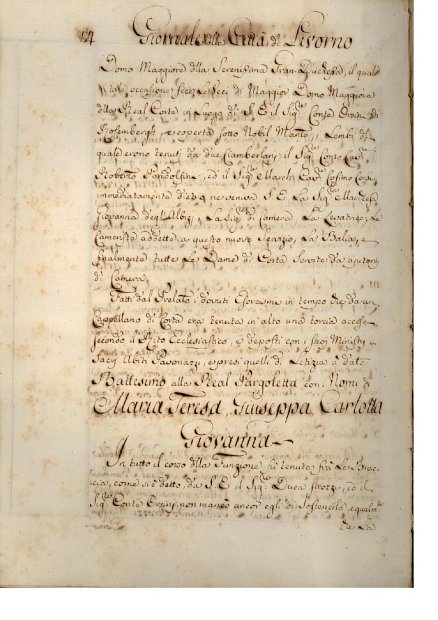 124 Giornale della Città di Livorno
Domo Maggiore della Serenissima Gran Duchessa, il quale
in tale occasione fece le veci di Maggior Domo Maggiore
della Real Corte in luogo di S. E. il Sig.
Rosembergh, e coperta sotto Nobil Manto, i Lembi del
quale erono tenuti da due Ciamberlani il Sig. Conte Cav.
Roberto Pandolfini, ed il Sig. March. Cav. Cosimo
immediatamente dietro perveniva S. E. La Sig. March.
Giovanna degl'Albizj, La Sig. di Camera La Levatrice, Le
Cameriste addette a questo nuovo Servizio, La Balia, e
finalmente tutte Le Dame di Corte
di Camera.
Fatti dal Prelato i dovuti Esorcismi in tempo che da un
Cappellano di Corte era tenuta in alto una torcia accesa
secondo il Rito Ecclesiastico, e deposti con i sacri Ministri
Sacri Abiti Pavonazzi, e presi quelli di Letizia e dato
Battesimo alla Real Pargoletta con i Nomi di
Maria Teresa, Giuseppa, Carlotta
Giovanna
In tutto il corso della Funzione fu tenuta fra Le Brac-
cia, come si è detto, da S. E. il Sig. Duca Strozzi, ed il
Sig. Conte, non mancò ancor egli di sostenerla